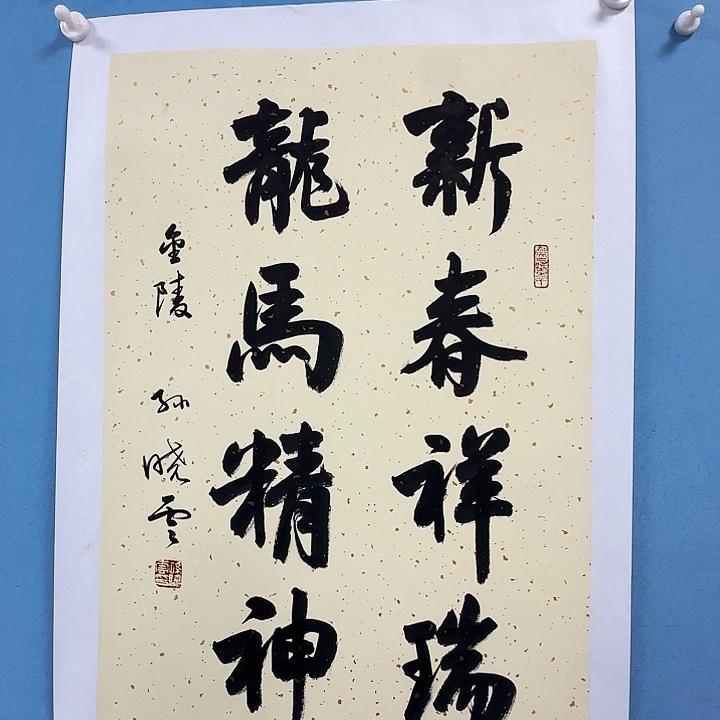 新春祥瑞
龍馬精神
金陵 孙晓雲